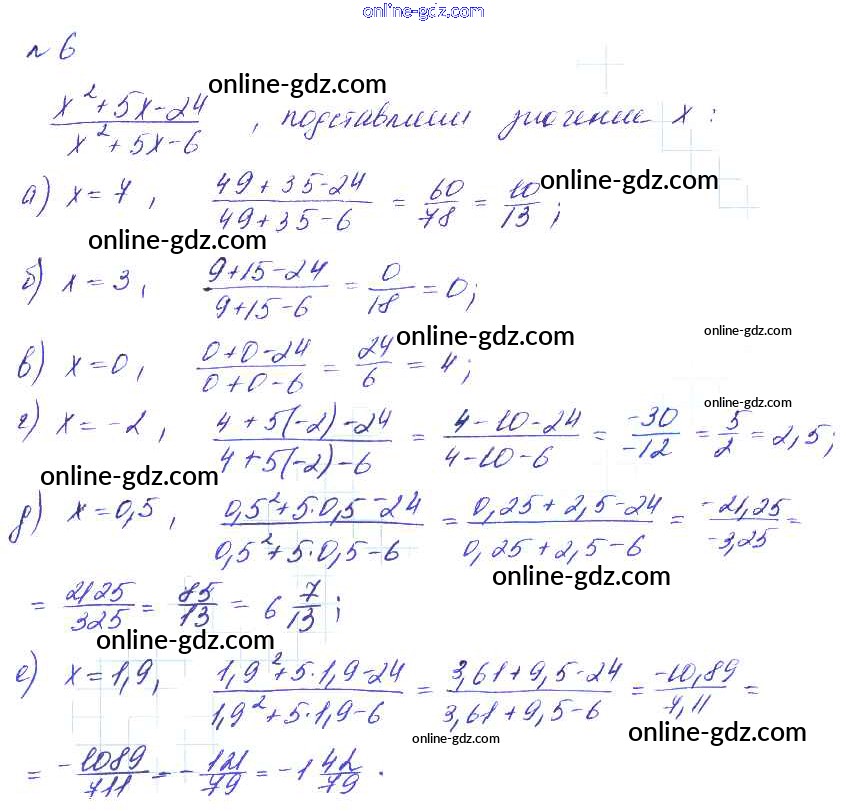 online-gdz.com
№ 6
online-gdz.com
(x² + 5x - 24)/(x² + 5x - 6), подставляем значение x:
а) x = 7, (49 + 35 - 24)/(49 + 35 - 6) = 60/78 = 10/13; online-gdz.com
online-gdz.com
б) x = 3, (9 + 15 - 24)/(9 + 15 - 6) = 0/18 = 0;
online-gdz.com online-gdz.com
в) x = 0, (0 + 0 - 24)/(0 + 0 - 6) = 24/6 = 4;
online-gdz.com
г) x = -2, (4 + 5(-2) - 24)/(4 + 5(-2) - 6) = (4 - 10 - 24)/(4 - 10 - 6) = -30/-12 = 5/2 = 2,5;
online-gdz.com online-gdz.com
д) x = 0,5, (0,5² + 5·0,5 - 24)/(0,5² + 5·0,5 - 6) = (0,25 + 2,5 - 24)/(0,25 + 2,5 - 6) = -21,25/-3,25 =
online-gdz.com
= 2125/325 = 85/13 = 6 7/13;
online-gdz.com
е) x = 1,9, (1,9² + 5·1,9 - 24)/(1,9² + 5·1,9 - 6) = (3,61 + 9,5 - 24)/(3,61 + 9,5 - 6) = -10,89/7,11 =
online-gdz.com online-gdz.com online-gdz.com
= -1089/711 = -121/79 = -1 42/79.
online-gdz.com